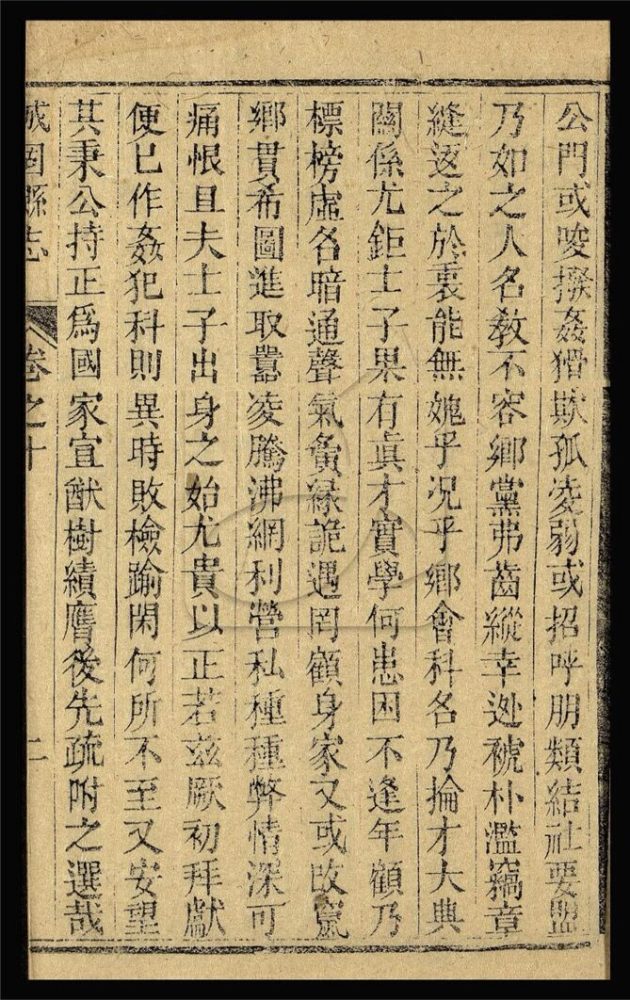 公門或唆撥姦猾欺孤凌弱或招呼朋類結社要盟
乃如之人名教不容鄉黨弗齒縱幸逃褫朴濫竊章
縫返之於衷能無媿乎況乎鄉會科名乃掄才大典
關係尤鉅士子果有眞才實學何患困不逢年顧乃
標榜虛名暗通聲氣夤緣詭遇罔顧身家又或改竄
鄉貫希圖進取囂凌騰沸網利營私種種弊情深可
痛恨且夫士子出身之始尤貴以正若玆厥初拜獻
便已作姦犯科則異時敗檢踰閑何所不至又安望
其秉公持正爲國家宣猷樹績膺後先疏附之選哉
城固縣志 卷之十 二